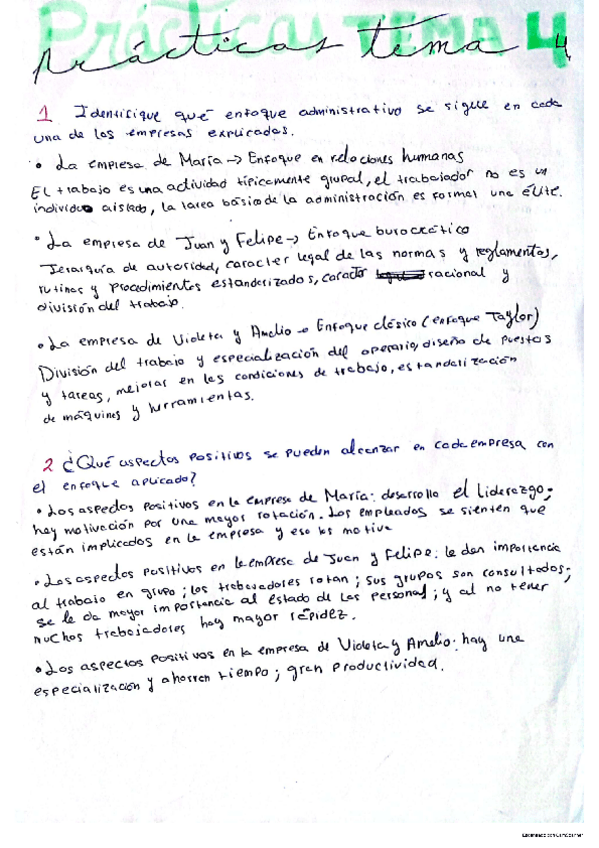 Prácticas TEMA 4
prácticas tema 4
1 Identifique qué enfoque administrativo se sigue en cada
una de las empresas explicadas.
• La empresa de María → Enfoque en relaciones humanas
El trabajo es una actividad típicamente grupal, el trabajador no es un
individuo aislado, la tarea básica de la administración es formar una élite.
• La empresa de Juan y Felipe → Enfoque burocrático
Jerarquía de autoridad, caracter legal de las normas y reglamentos,
rutinas y procedimientos estanderizados, caracter racional y
división del trabajo.
• La empresa de Violeta y Amelio → Enfoque clásico (enfoque Taylor)
División del trabajo y especialización del operario, diseño de puestos
y tareas, mejoras en las condiciones de trabajo, estandalización
de máquines y herramientas.
2 ¿Qué aspectos positivos se pueden alcanzar en cada empresa con
el enfoque aplicado?
• Los aspectos positivos en la empresa de María: desarrollo el liderazgo;
hay motivación por una mayor rotación. Los empleados se sienten que
están implicados en la empresa y eso les motiva
• Los aspectos positivos en la empresa de Juan y Felipe: le dan importancia
al trabajo en grupo; los trabajadores rotan; sus grupos son consultados;
se le da mayor importancia al estado de las personal; y al no tener
muchos trabajadores hay mayor rápidez.
• Los aspectos positivos en la empresa de Violeta y Amelio: hay una
especialización y ahorran tiempo; gran productividad.